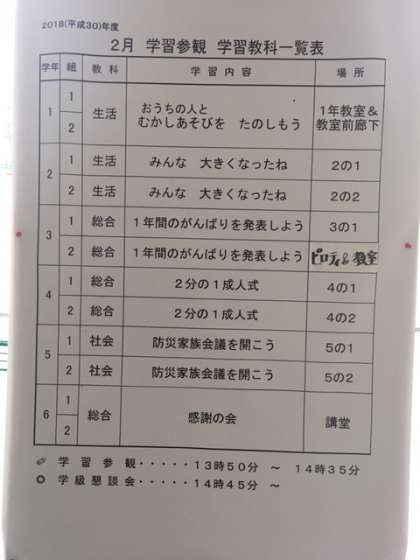 2018(平成30)年度
2月 学習参観 学習教科一覧表
学年 組 教科 学習内容 場所
1 1 生活 おうちの人と 1年教室&
2 むかしあそびを たのしもう 教室前廊下
2 1 生活 みんな 大きくなったね 2の1
2 生活 みんな 大きくなったね 2の2
3 1 総合 1年間のがんばりを発表しよう 3の1
2 総合 1年間のがんばりを発表しよう ピロティ&教室
4 1 総合 2分の1成人式 4の1
2 総合 2分の1成人式 4の2
5 1 社会 防災家族会議を開こう 5の1
2 社会 防災家族会議を開こう 5の2
6 1 総合 感謝の会 講堂
2
学習参観・・・・・13時50分 ~ 14時35分
◎ 学級懇談会・・・・・14時45分 ~